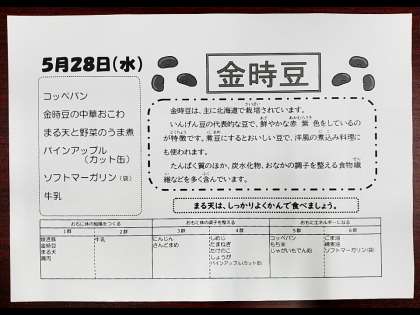 5月28日(水)
コッペパン
金時豆の中華おこわ
まる天と野菜のうま煮
パインアップル
(カット缶)
ソフトマーガリン(袋)
牛乳
金時豆
金時豆は、主に北海道で栽培されています。
いんげん豆の代表的な豆で、鮮やかな赤紫色をしているの
が特徴です。煮豆にするとおいしい豆で、洋風の煮込み料理に
も使われます。
たんぱく質のほか、炭水化物、おなかの調子を整える食物繊
維などを多く含んでいます。
まる天は、しっかりよくかんで食べましょう。
おもに体の組織をつくる おもに体の調子を整える おもにエネルギーになる
1群 2群 3群 4群 5群 6群
金時豆
まる天
鶏肉
牛乳
にんじん
さんどまめ
しめじ
たまねぎ
たけのこ
しょうが
パインアップル(カット缶)
コッペパン
もち米
じゃがいもでん粉
ごま油
綿実油
ソフトマーガリン(袋)